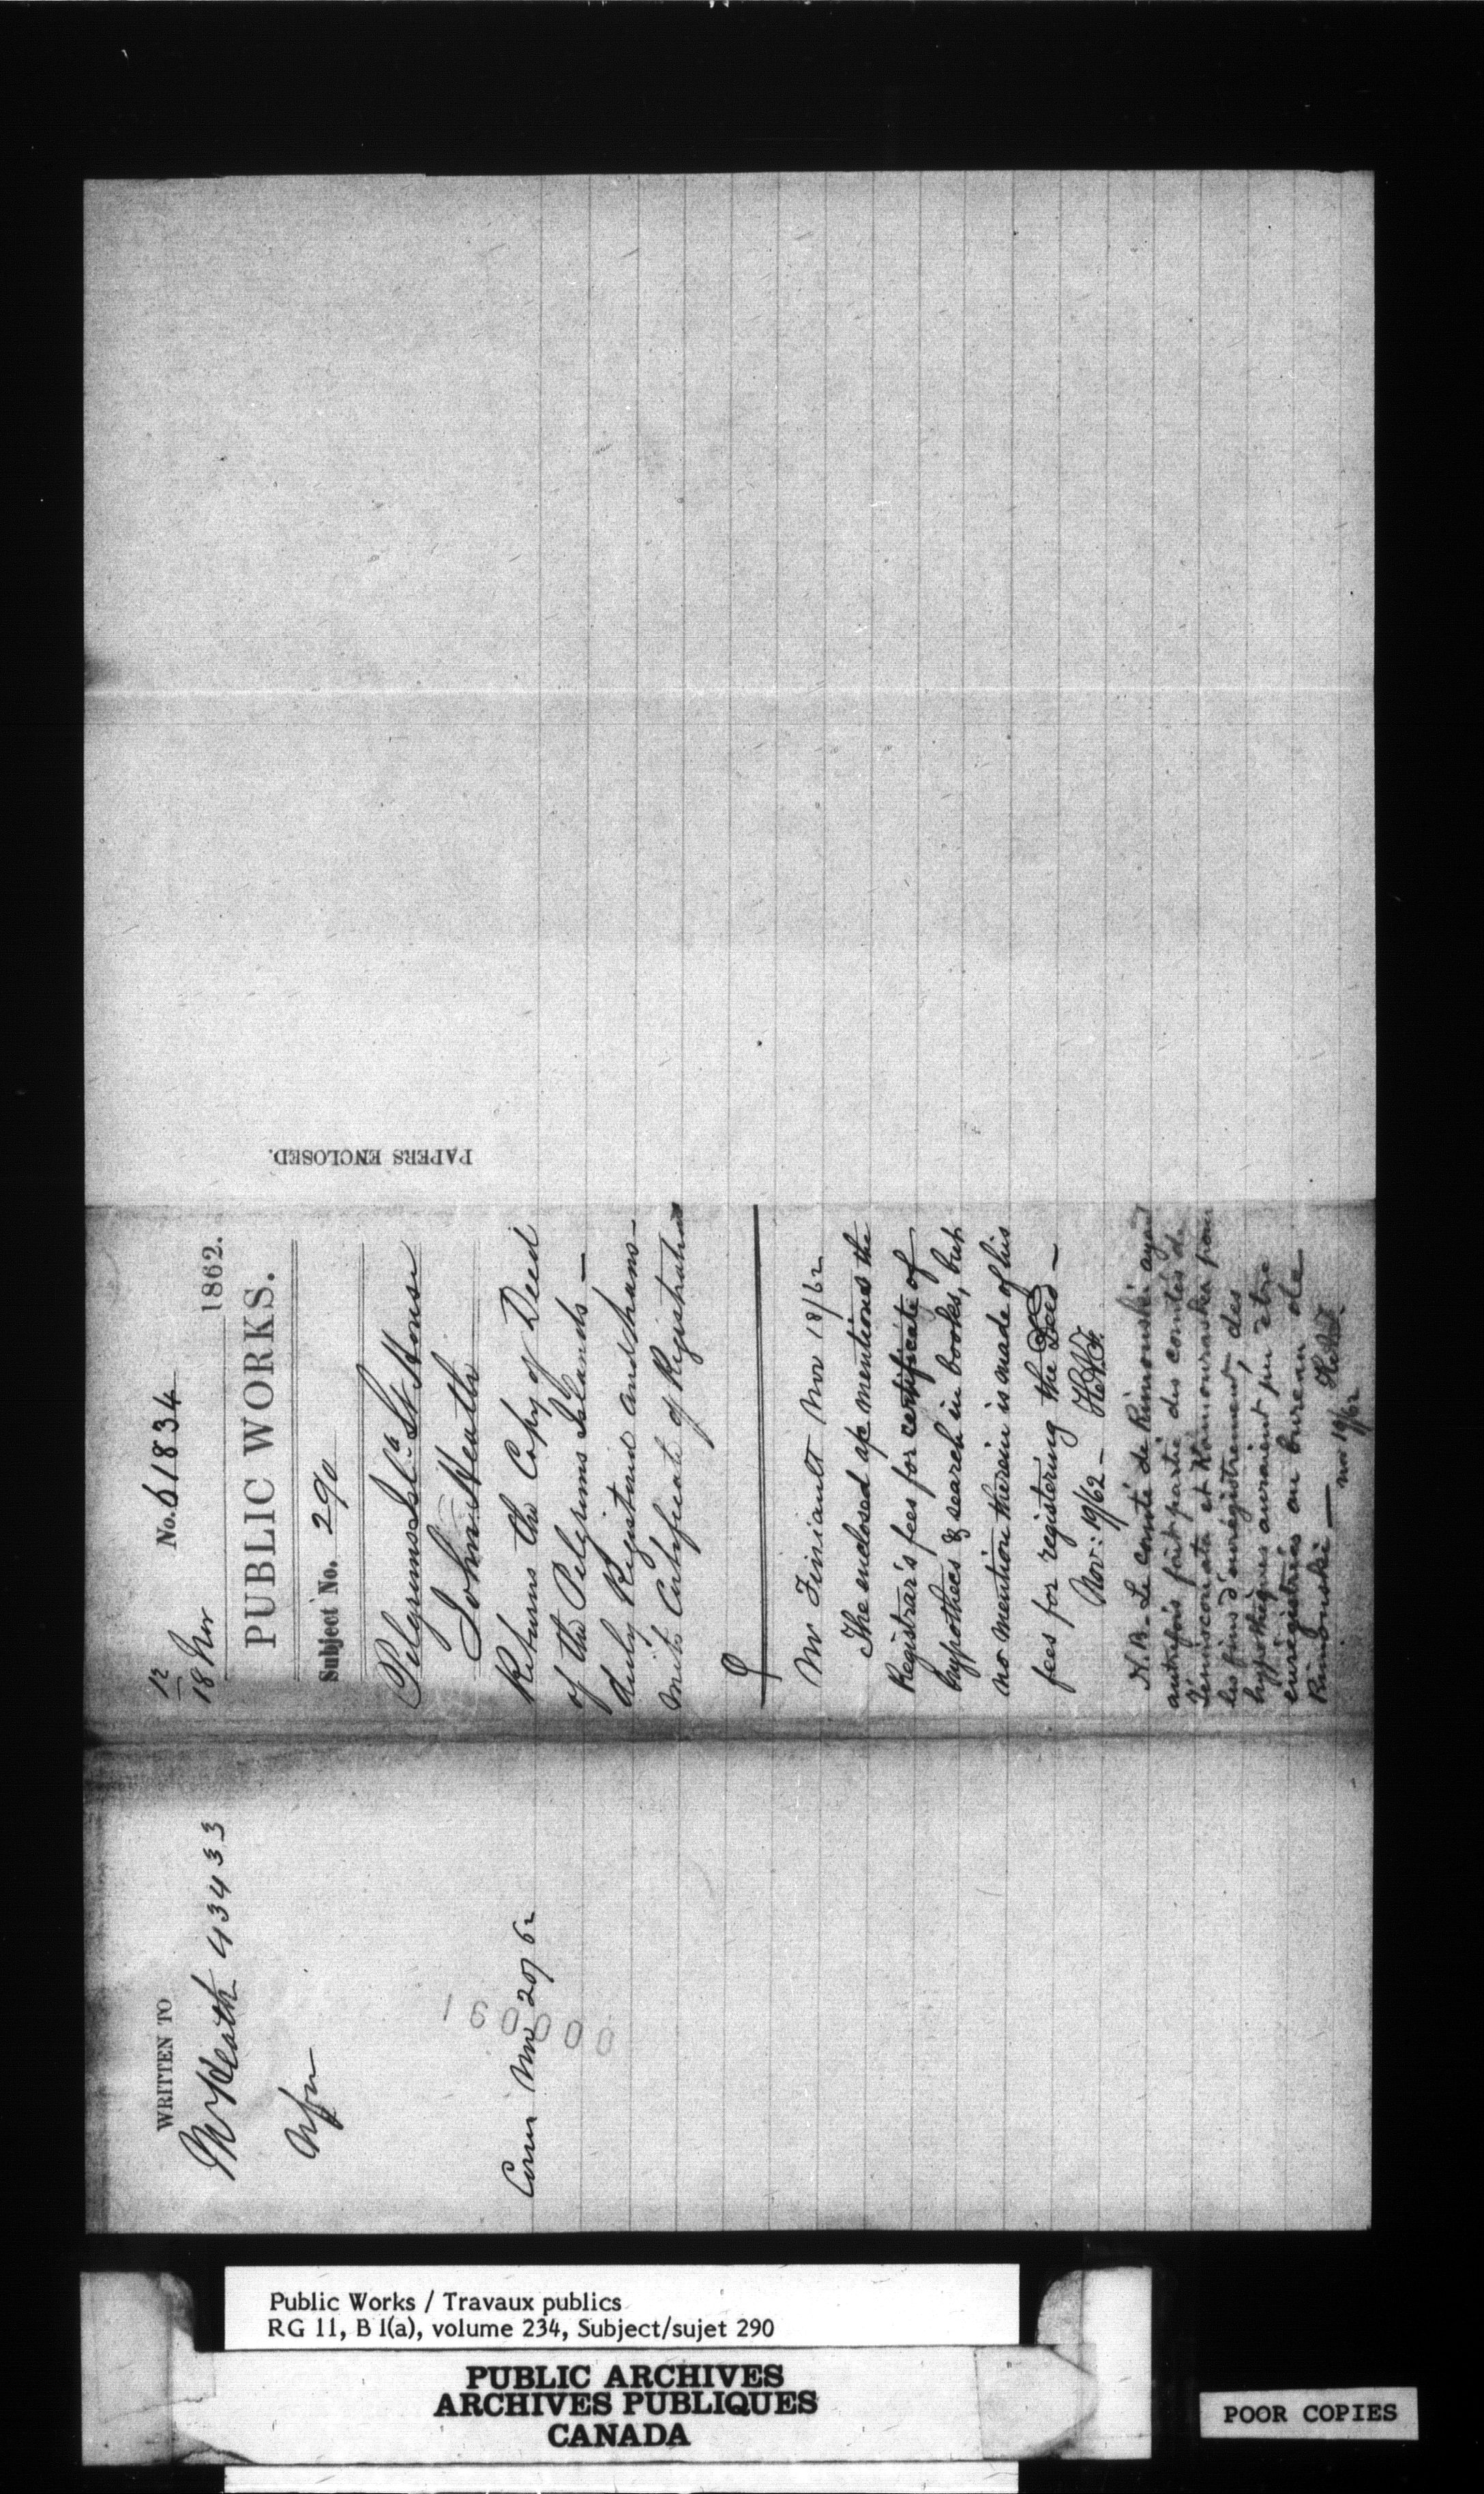 12
18 Nov
No. 61834
1862.
PUBLIC WORKS.
Subject No. 290
Pilgrims Isl.ᵈ Lt House
John Heath
Returns the Copy of Deed
of the Pilgrims Islands —
duly Registered and trans-
mits Certificate of Registration
Mr Finiault Nov 18/62
The enclosed a/c mentions the
Registrar's fees for certificate of
hypothecs & search in books, but
no mention therein is made of his
fees for registering the Deed —
Nov: 19/62 —
N.B. — Le comté de Rimouski ayant
autrefois fait partie des comtés de
Témiscouata et Kamouraska pour
les fins d'enrégistrement, des
hypothèques auraient pu etre
enregistrés au bureau de
Rimouski —
Nov 19/62
PAPERS ENCLOSED.
WRITTEN TO
Mr Heath 43433
Com Nov 20/62
160000
Public Works / Travaux publics
RG 11, B 1(a), volume 234, Subject/sujet 290
PUBLIC ARCHIVES
ARCHIVES PUBLIQUES
CANADA
POOR COPIES